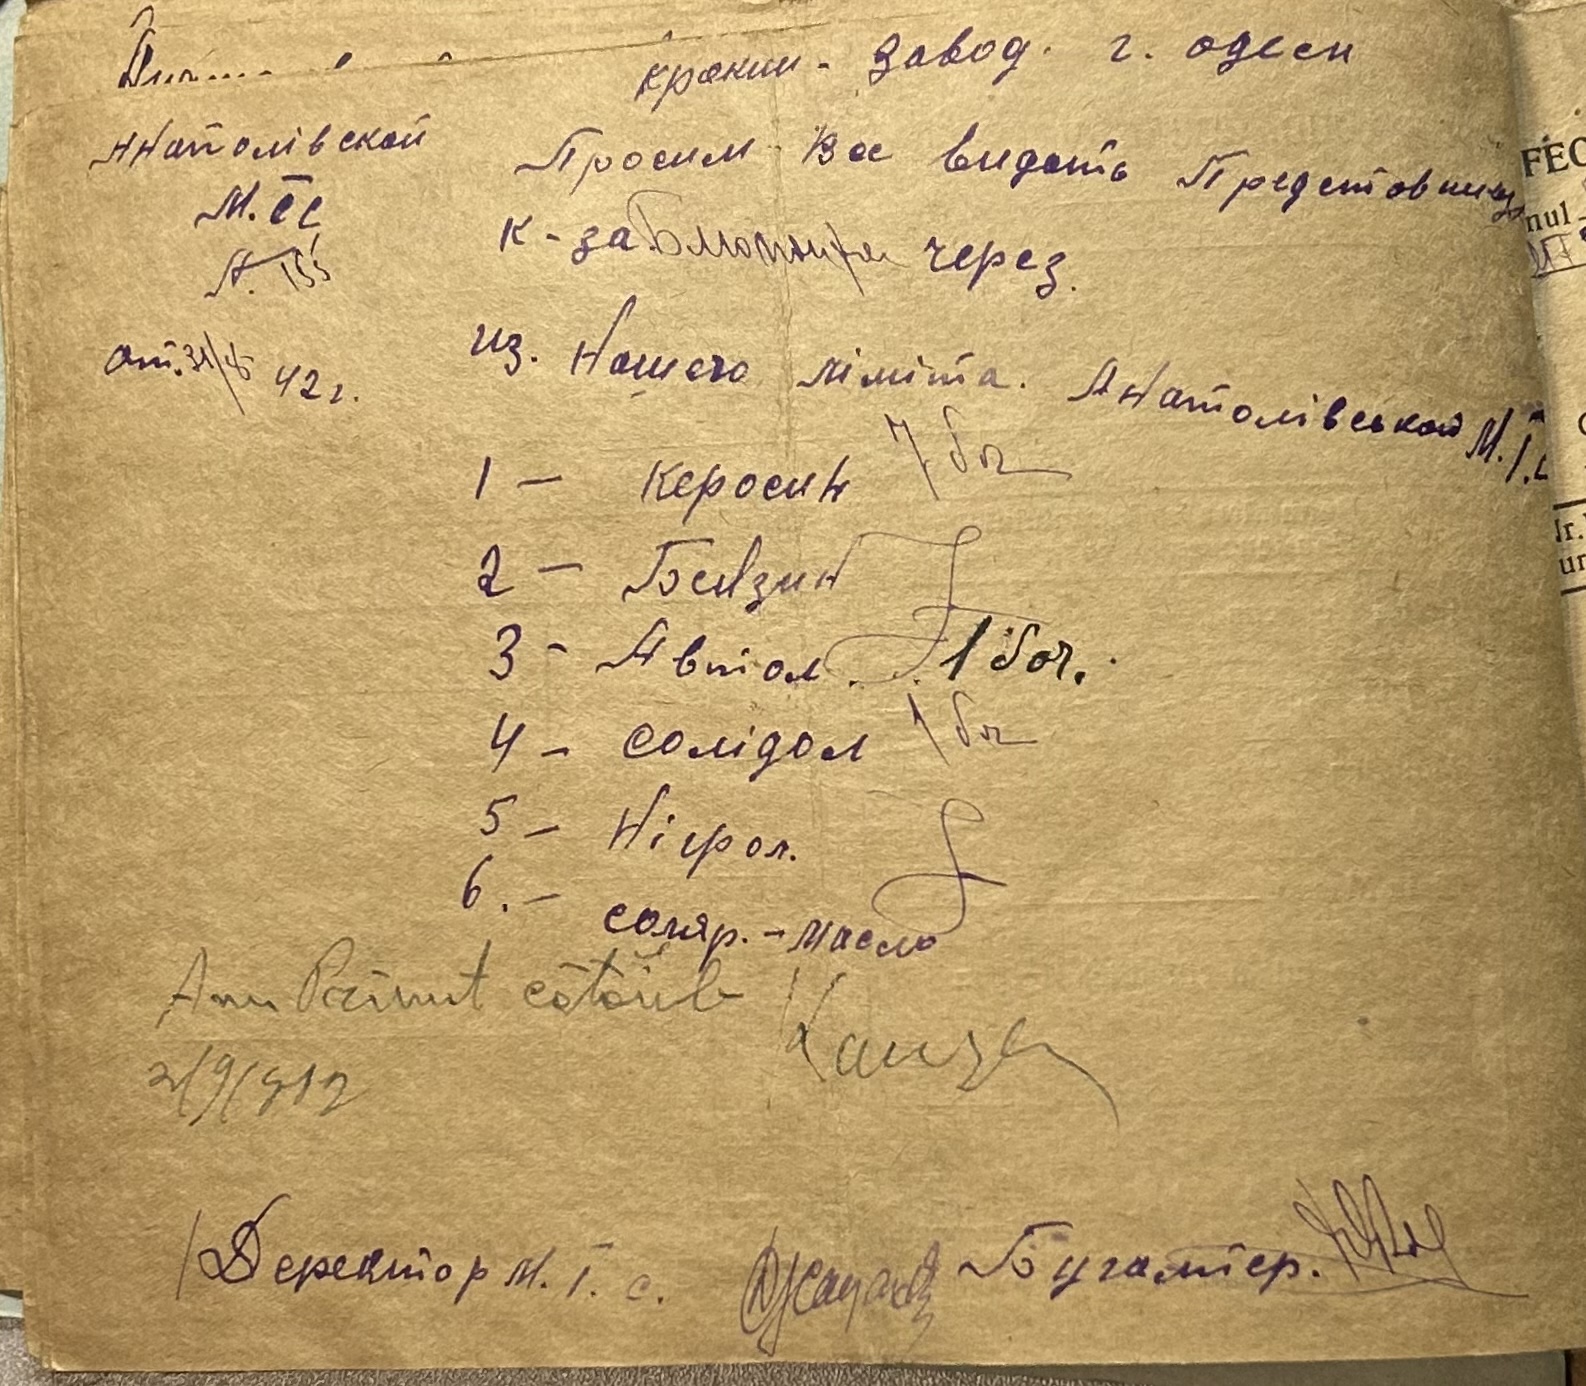 крекин - завод. г. одеси
Анатолівской
М.Т.С
от. 31/8 42 г.
Просим Вас видать Предстовнику
К-за через.
из. Нашего ліміта. Анатолівськой М.Т.С
1 — Керосин 7 боч
2 — Бензин
3 - Автол. 1 боч.
4 - Солідол 1 боч
5 - Нігрол.
6. - Соляр. - масло
Am Primit
2/9/942
Деректор М.Т.с.
Бугалтер.
FEC
nul
Nr.